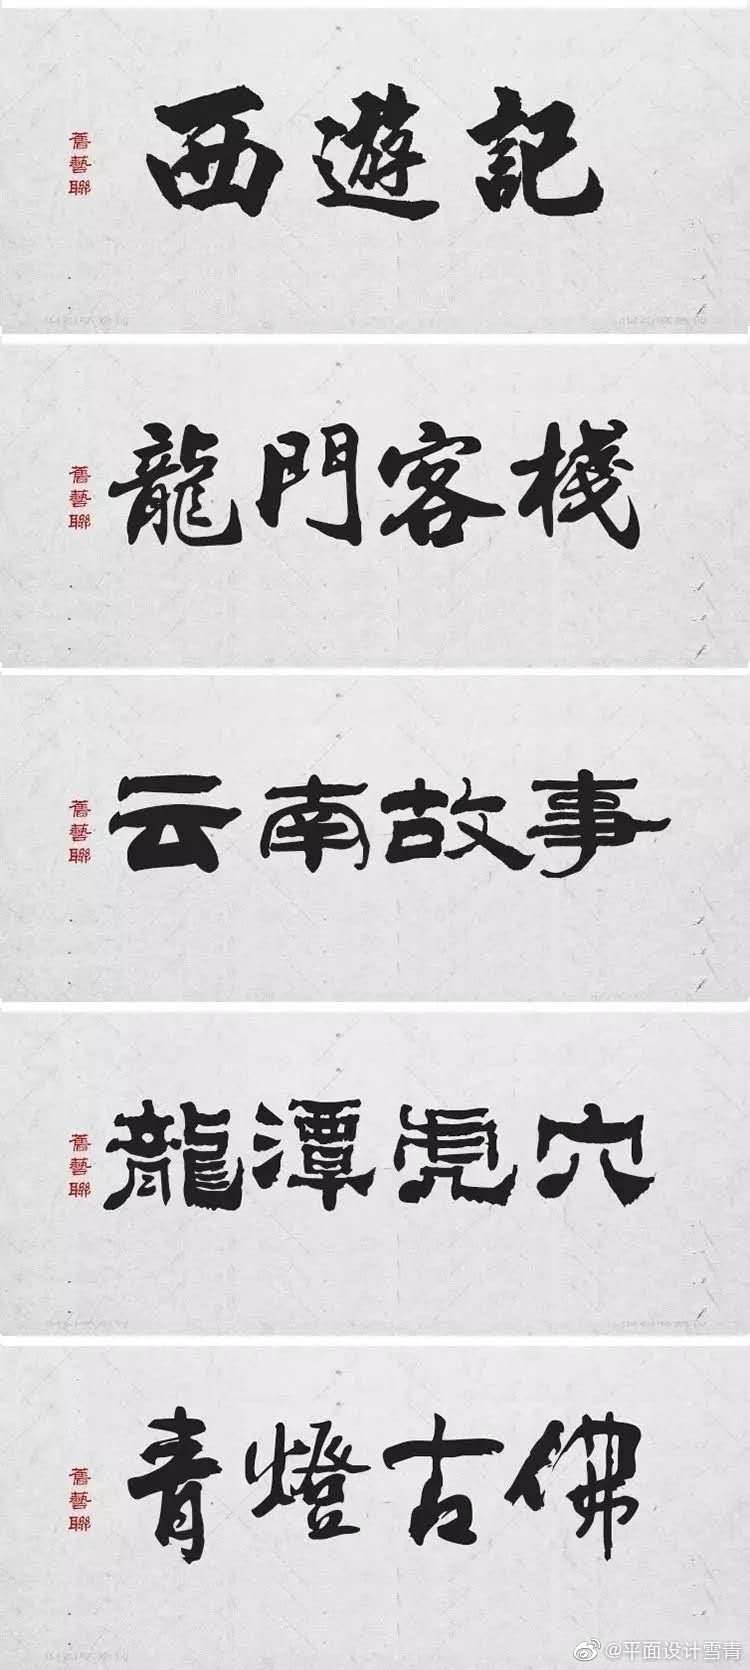 西遊記
舊藝聯
龍門客棧
舊藝聯
云南故事
舊藝聯
龍潭虎穴
舊藝聯
青燈古佛
舊藝聯
@平面设计雪青